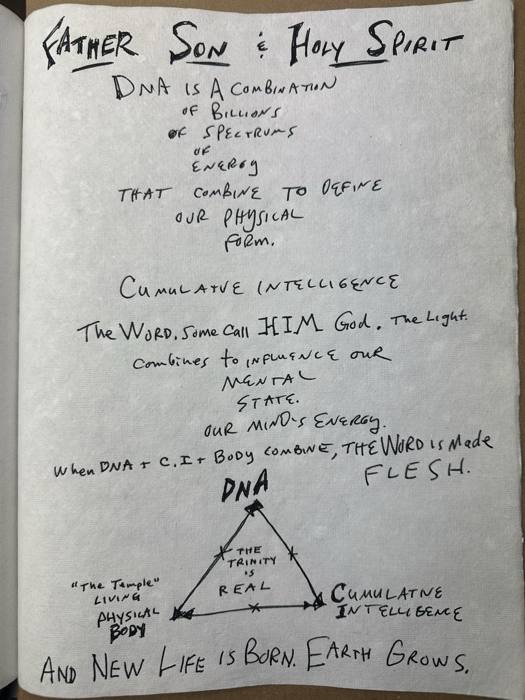 FATHER SON & HOLY SPIRIT
DNA IS A COMBINATION
OF BILLIONS
OF SPECTRUMS
OF
ENERGY
THAT COMBINE TO DEFINE
OUR PHYSICAL
FORM.
CUMULATVE INTELLIGENCE
The WORD. Some Call HIM God. The Light.
Combines to INFLUENCE OUR
MENTAL
STATE.
OUR MIND'S ENERGY.
When DNA + C.I + BODY COMBINE, THE WORD is Made
FLESH.
DNA
THE
TRINITY
IS
REAL
"The Temple"
LIVING
PHYSICAL
BODY
CUMULATIVE
INTELLIGENCE
AND NEW LIFE IS BORN. EARTH GROWS.